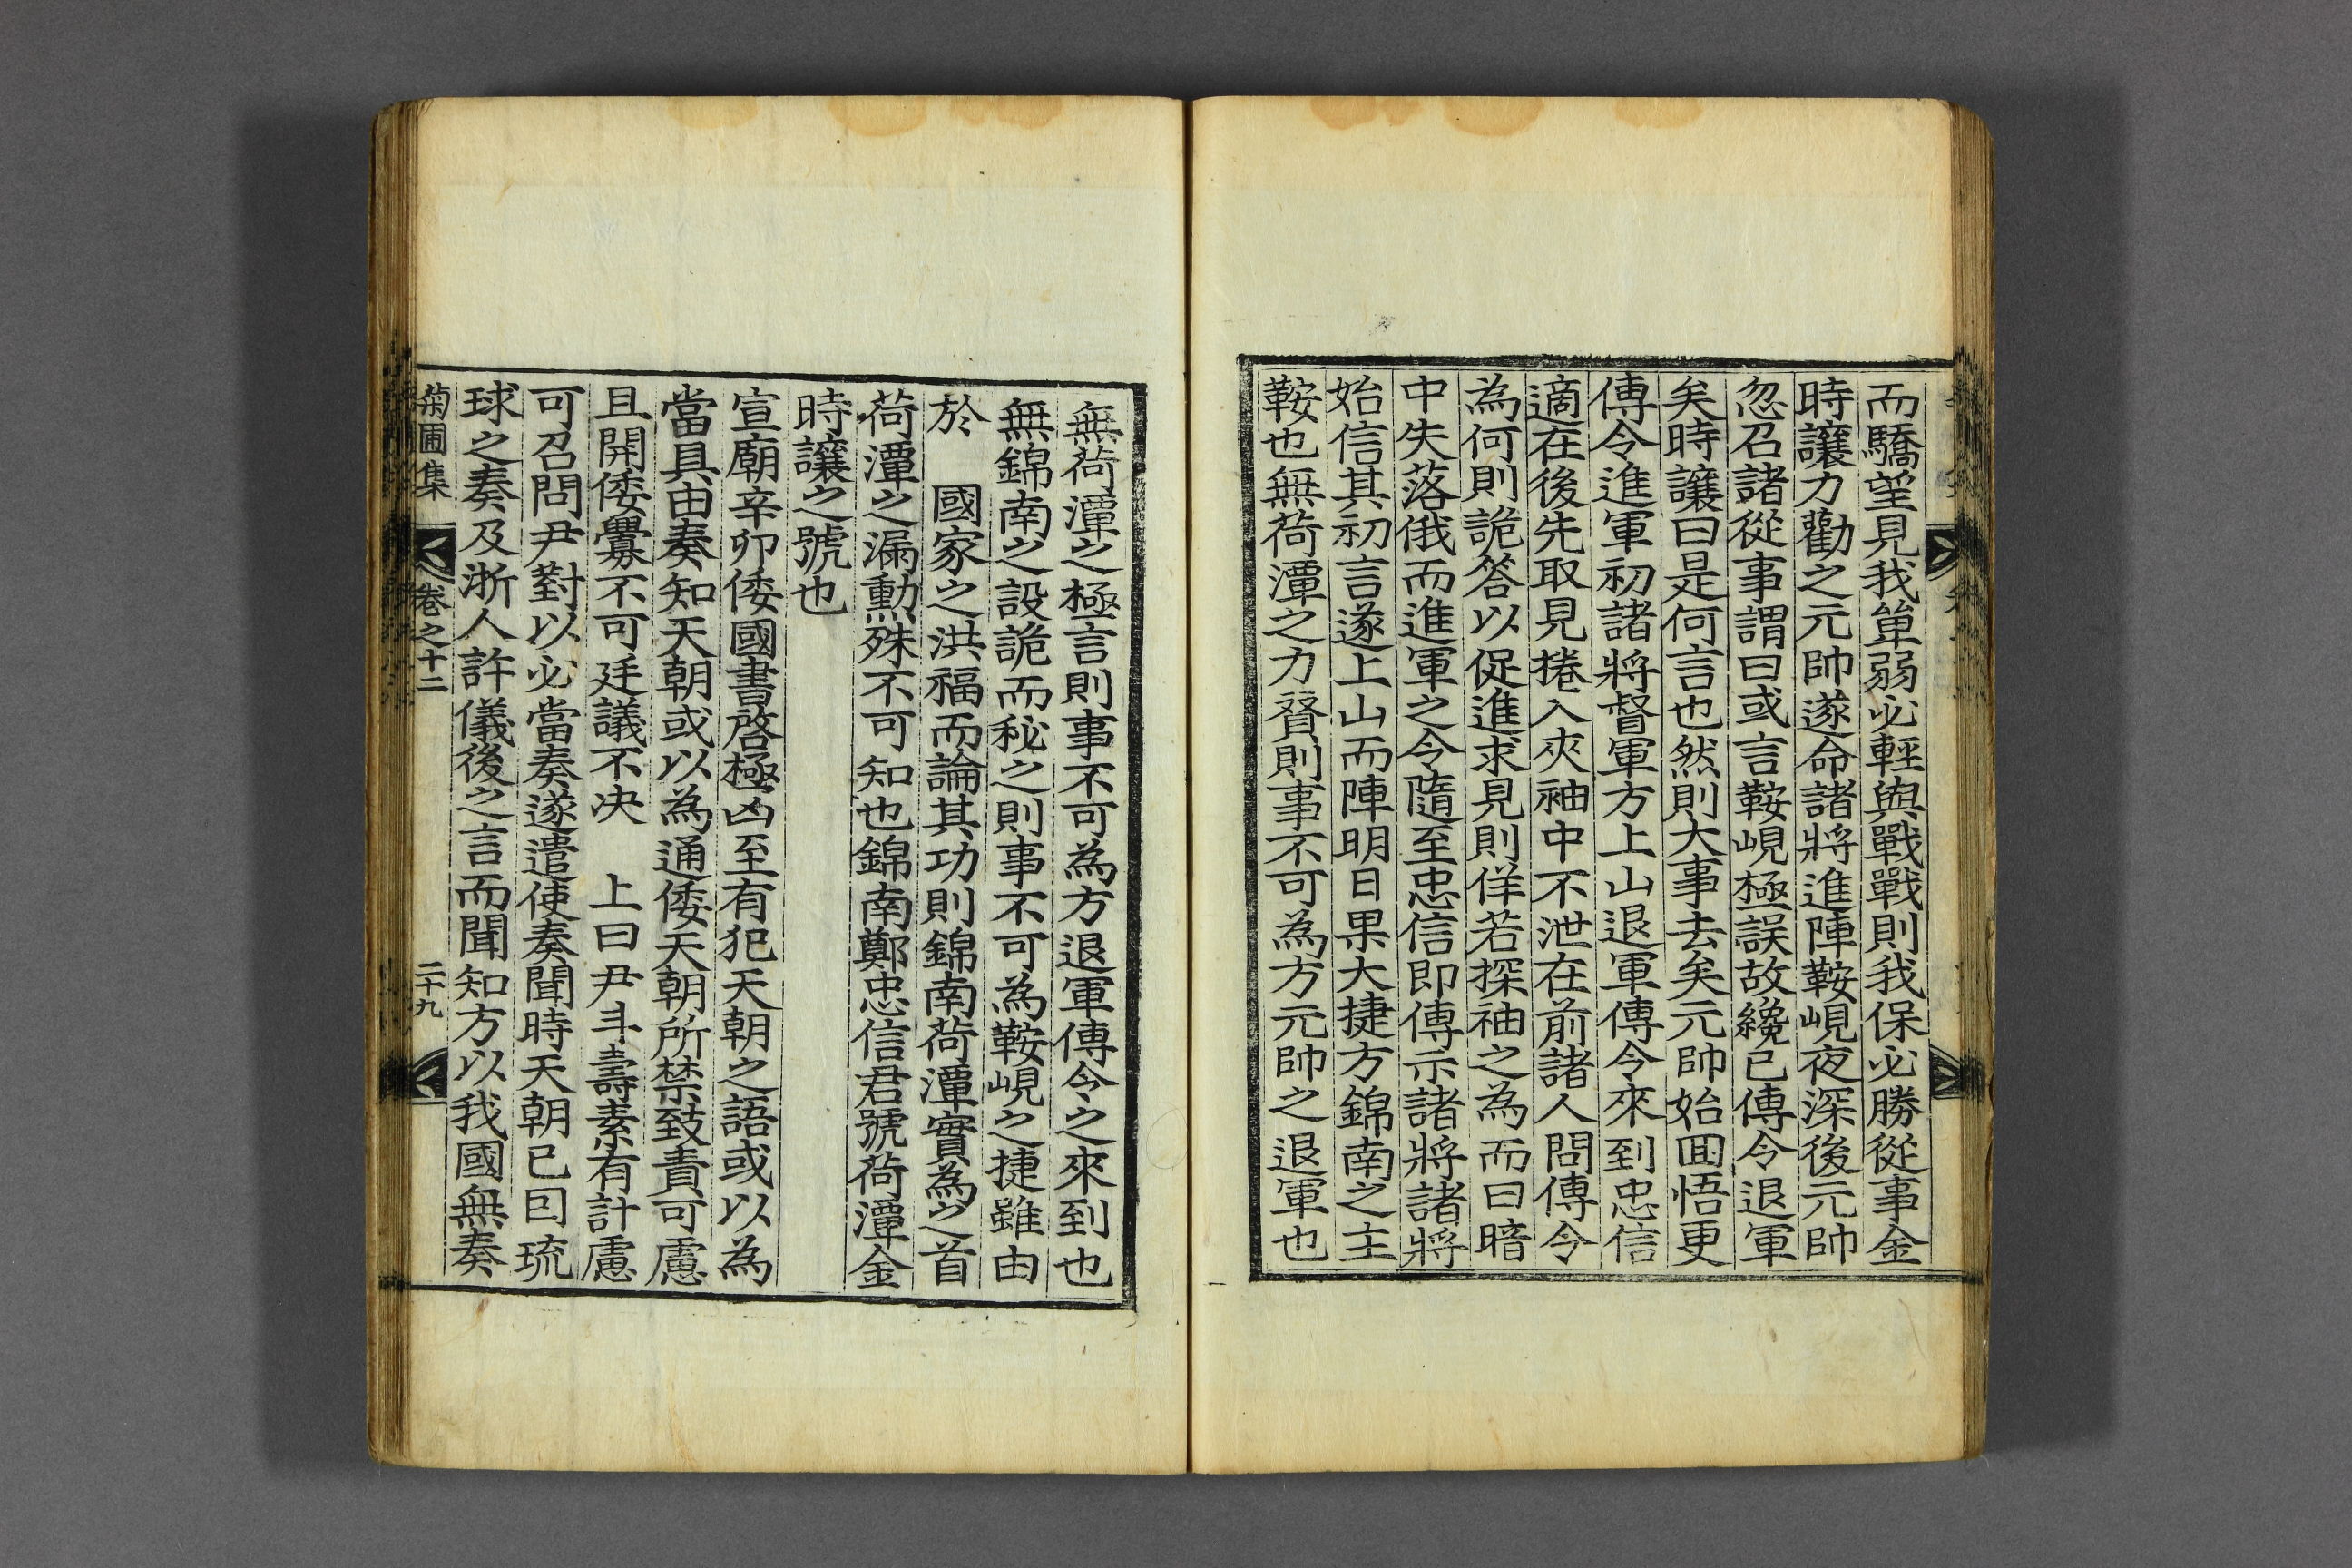 而驕望見我單弱必輕與戰戰則我保必勝從事金
時讓力勸之元帥遂命諸將進陣鞍峴夜深後元帥
忽召諸從事謂曰或言鞍峴極誤故纔已傳令退軍
矣時讓曰是何言也然則大事去矣元帥始囬悟更
傳令進軍初諸將督軍方上山退軍傳令來到忠信
適在後先取見捲入夾袖中不泄在前諸人問傳令
為何則詭答以促進求見則佯若探袖之為而曰暗
中失落俄而進軍之令隨至忠信即傳示諸將諸將
始信其初言遂上山而陣明日果大捷方錦南之主
鞍也無荷潭之力賛則事不可為方元帥之退軍也
無荷潭之極言則事不可為方退軍傳令之來到也
無錦南之設詭而秘之則事不可為鞍峴之捷雖由
於 國家之洪福而論其功則錦南荷潭實為之首
荷潭之漏勳殊不可知也錦南鄭忠信君號荷潭金
時讓之號也
宣廟辛卯倭國書啓極凶至有犯天朝之語或以為
當具由奏知天朝或以為通倭天朝所禁致責可慮
且開倭釁不可廷議不决 上曰尹斗壽素有計慮
可召問尹對以必當奏遂遣使奏聞時天朝已因琉
球之奏及浙人許儀後之言而聞知方以我國無奏
菊圃集 卷之十二 二十九